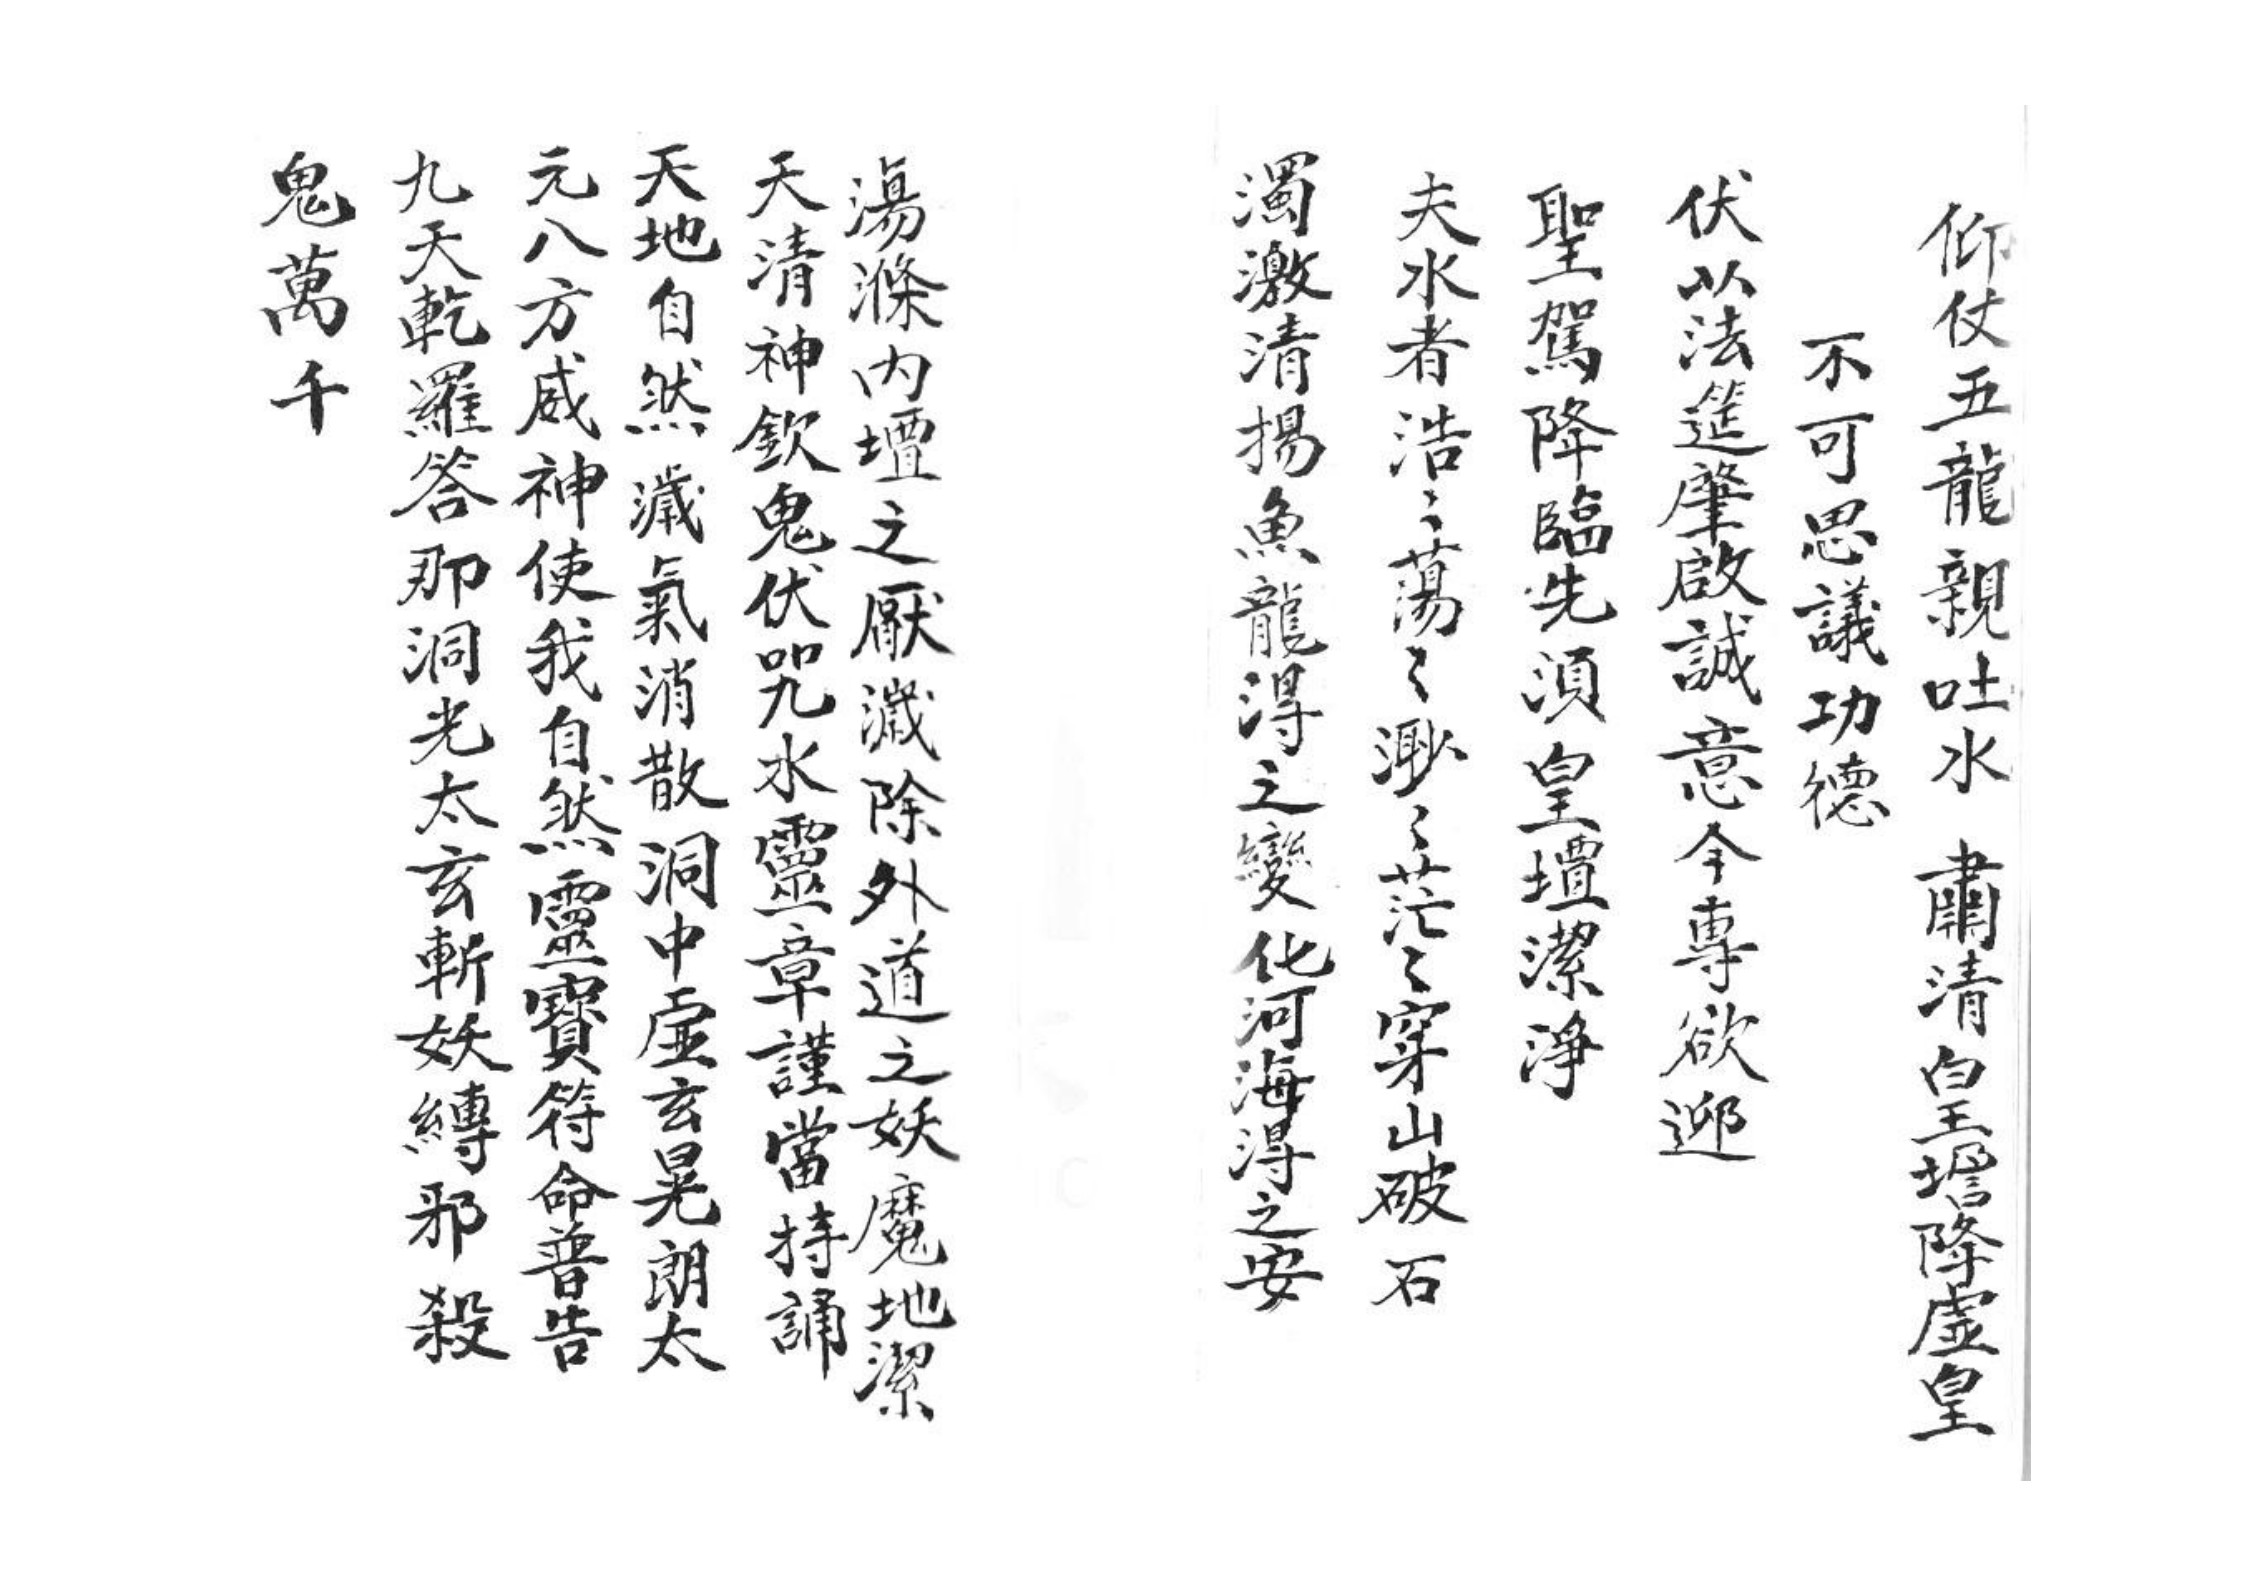 仰仗五龍親吐水 肅清皇壇降虛皇
不可思議功德
伏以法筵肇啟誠意今專欲迎
聖駕降臨先須皇壇潔淨
夫水者浩〻蕩〻渺〻茫〻穿山破石
濁激清揚魚龍得之變化河海得之安
蕩滌內壇之厭濊除外道之妖魔地潔
天清神欽鬼伏咒水靈章謹當持誦
天地自然濊氣消散洞中虛玄晃朗太
元八方威神使我自然靈寶符命普告
九天乾羅答那洞光太玄斬妖縛邪殺
鬼萬千